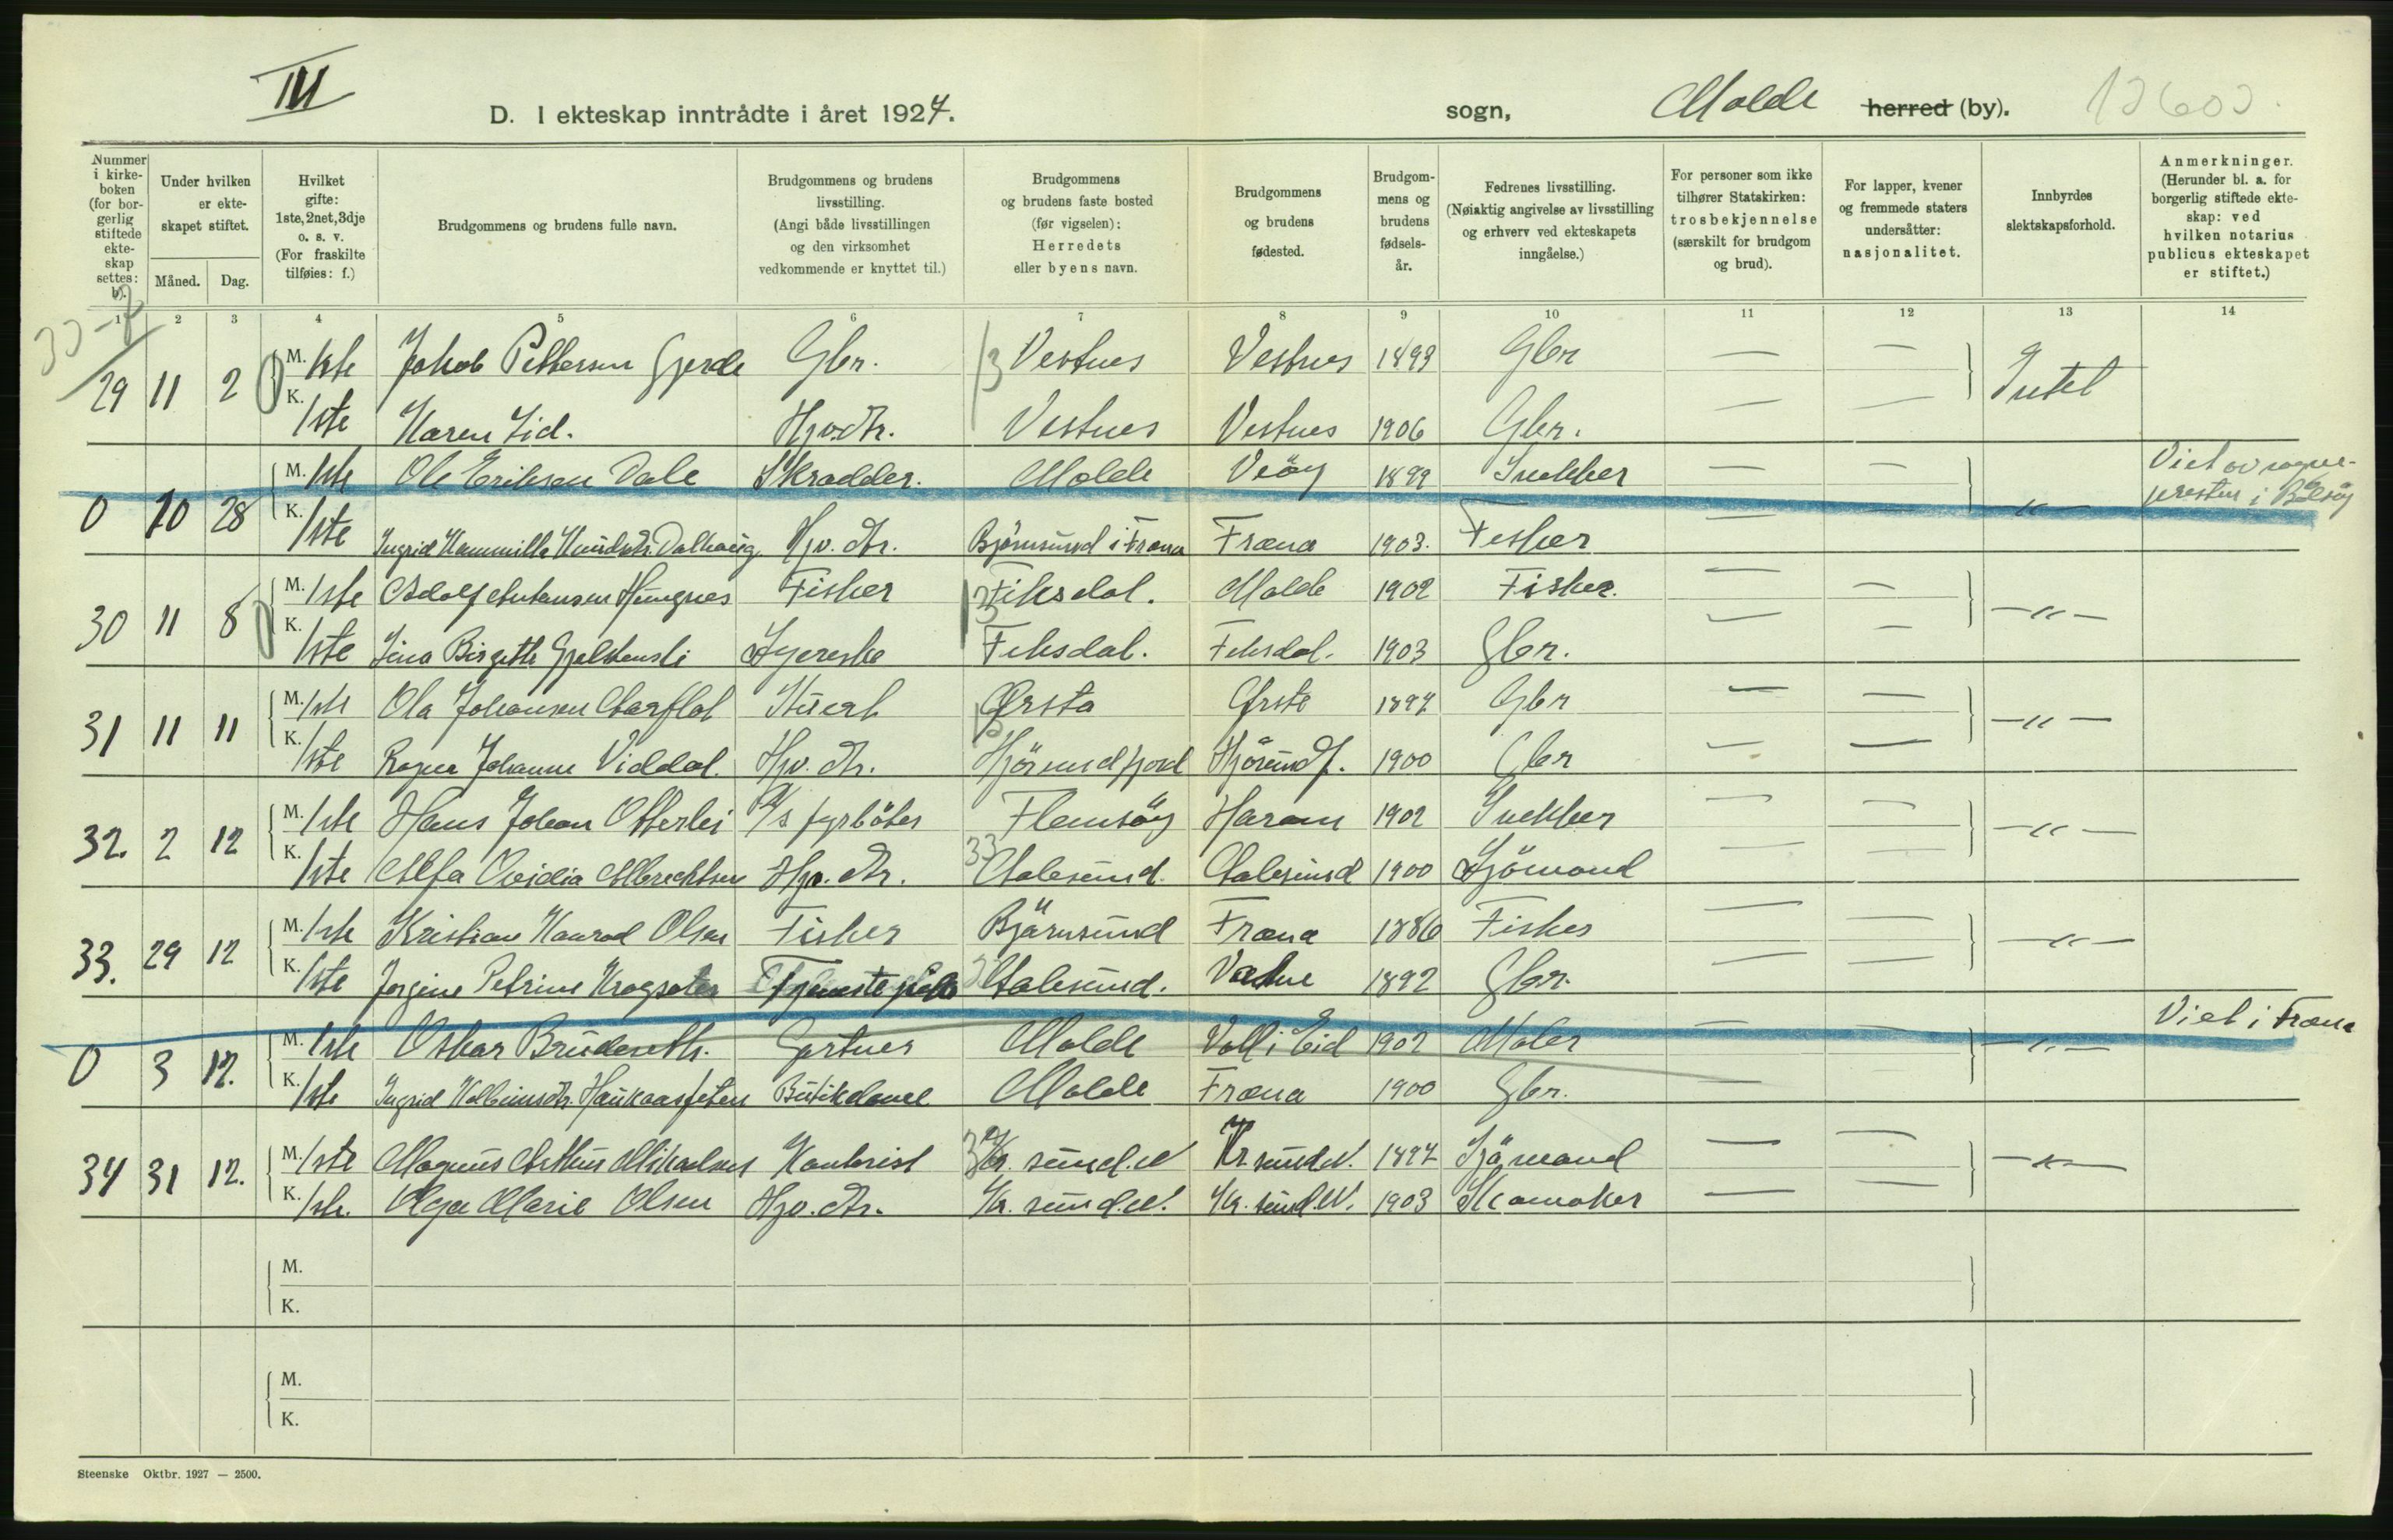 III
D. I ekteskap inntrådte i året 1927.
sogn, Molde herred (by). 12603.
Nummer i kirkeboken (for borgerlig stiftede ekteskap settes: b).
Under hvilken er ekteskapet stiftet.
Måned. Dag.
Hvilket gifte: 1ste, 2net, 3dje o. s. v. (For fraskilte tilføies: f.)
Brudgommens og brudens fulle navn.
Brudgommens og brudens livsstilling. (Angi både livsstillingen og den virksomhet vedkommende er knyttet til.)
Brudgommens og brudens faste bosted (før vigselen): Herredets eller byens navn.
Brudgommens og brudens fødested.
Brudgommens og brudens fødselsår.
Fedrenes livsstilling. (Nøiaktig angivelse av livsstilling og erhverv ved ekteskapets inngåelse.)
For personer som ikke tilhører Statskirken: trosbekjennelse (særskilt for brudgom og brud).
For lapper, kvener og fremmede staters undersåtter: nasjonalitet.
Innbyrdes slektskapsforhold.
Anmerkninger. (Herunder bl. a. for borgerlig stiftede ekteskap: ved hvilken notarius publicus ekteskapet er stiftet.)
1 2 3 4 5 6 7 8 9 10 11 12 13 14
29 11 2 M. 1ste Jakob Pettersen Gjerde Gbr. Vestnes Vestnes 1893 Gbr — — Intet
K. 1ste Karen Lid. Hjv. dtr. Vestnes Vestnes 1906 Gbr. — —
0 10 28 M. 1ste Ole Eriksen Dale Skrædder. Molde Veöy 1899 Snekker — — — " — Viet av sogne-
presten i Bolsöy
K. 1ste Ingrid Kammilla Knudsdtr. Dalhaug Hjv. dtr. Björnsund i Fræna Fræna 1903. Fisker — —
30 11 8 M. 1ste Adolf Antonsen Hungnes Fisker Fiksdal. Molde 1902 Fisker. — — — " —
K. 1ste Lina Birgitte Gjelstenli Syerske Fiksdal. Fiksdal. 1903 Gbr. — —
31 11 11 M. 1ste Ola Johansen Aarflot Stuert Ørsta Ørsta 1897 Gbr — — — " —
K. 1ste Ragna Johanne Viddal. Hjv. dtr. Hjörundfjord Hjörundf. 1900 Gbr — —
32. 2 12 M. 1ste Hans Johan Otterlei D/s fyrböter Flemsöy Haram 1902 Snekker — — — " —
K. 1ste Alfa Ovidia Albrechtsen Hjv. dtr. Aalesund. Aalesund 1900 Sjömand — —
33. 29 12 M. 1ste Kristian Konrad Olsen Fisker Björnsund Fræna 1886 Fisker — — — " —
K. 1ste Jorgine Petrine Krogsæter Tjenestepike Aalesund. Vatne 1892 Gbr. — —
0 3 12. M. 1ste Oskar Brudeseth. Gartner Molde Voll i Eid 1902 Maler — — — " — Viet i Fræna
K. 1ste Ingrid Kolbeinsdtr. Haukaasfeten Butikdame Molde Fræna 1900 Gbr. — —
34 31 12. M. 1ste Magnus Arthur Mikaelsen Kontorist Kr. sund. N Kr sund N. 1897 Sjömand — — — " —
K. 1ste. Olga Marie Olsen Hjv. dtr. Kr. sund. N. Kr. sund. N. 1903 Skomaker — —
M.
K.
M.
K.
Steenske Oktbr. 1927 — 2500.